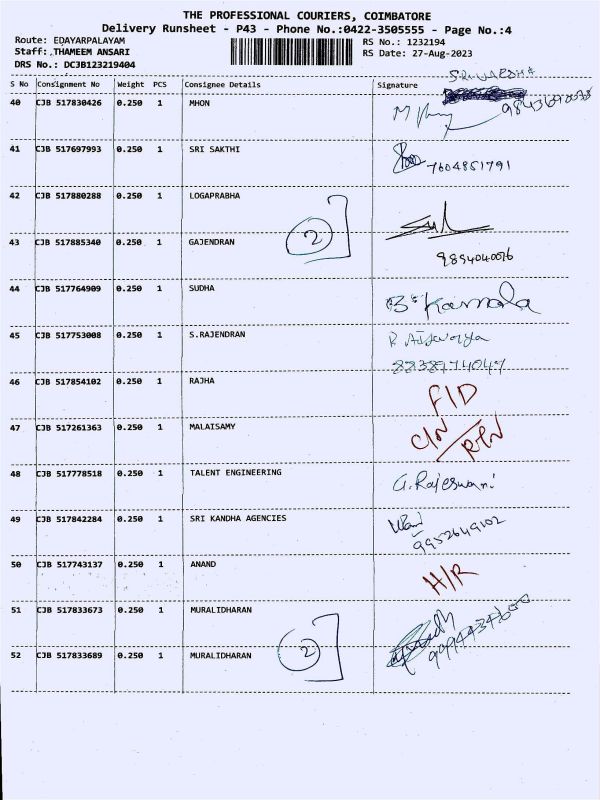 THE PROFESSIONAL COURIERS, COIMBATORE
Delivery Runsheet - P43 - Phone No.:0422-3505555 - Page No.:4
Route: EDAYARPALAYAM
RS No.: 1232194
Staff: THAMEEM ANSARI
RS Date: 27-Aug-2023
DRS No.: DCJB123219404
S No Consignment No Weight PCS Consignee Details Signature
40 CJB 517830426 0.250 1 MHON
41 CJB 517697993 0.250 1 SRI SAKTHI 7604851791
42 CJB 517880288 0.250 1 LOGAPRABHA
2
43 CJB 517885340 0.250 1 GAJENDRAN
44 CJB 517764909 0.250 1 SUDHA B. Kamala
45 CJB 517753008 0.250 1 S.RAJENDRAN
46 CJB 517854102 0.250 1 RAJHA F/D
47 CJB 517261363 0.250 1 MALAISAMY
48 CJB 517778518 0.250 1 TALENT ENGINEERING G.Rajeswari
49 CJB 517842284 0.250 1 SRI KANDHA AGENCIES
9952649102
50 CJB 517743137 0.250 1 ANAND H/R
51 CJB 517833673 0.250 1 MURALIDHARAN
2
52 CJB 517833689 0.250 1 MURALIDHARAN